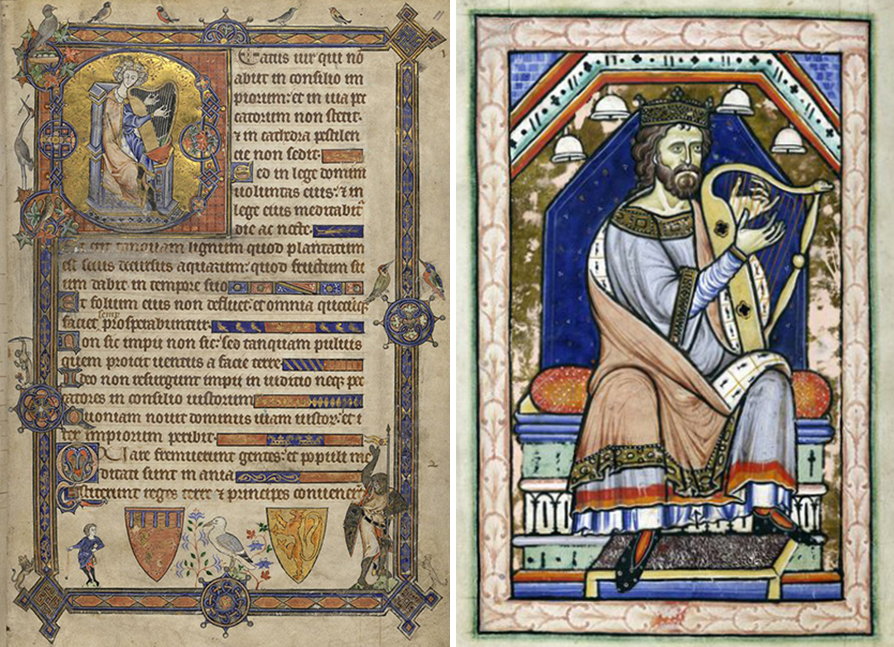 Beatus uir qui nõ
abiit in consilio im
piorum: et in uia pec
catorum non stetit:
⁊ in cathedra pestilen
cie non sedit.
Sed in lege domini
uoluntas eius: ⁊ in
lege eius meditabit᷑
die ac nocte.
Et erit tanquam lignum quod plantatum
est secus decursus aquarum: quod fructum su
um dabit in tempore suo
Et folium eius non defluet: et omnia quecũq;
semp
faciet prosperabuntur.
Non sic impii non sic: sed tanquam puluis
quem proicit uentus a facie terre.
Ideo non resurgunt impii in iudicio: neq; pec
catores in consilio iustorum
Quoniam nouit dominus uiam iustor: et i
ter impiorum peribit.
Quare fremuerunt gentes: et populi me
ditati sunt in ania
Astiterunt reges terre ⁊ principes conuener̃